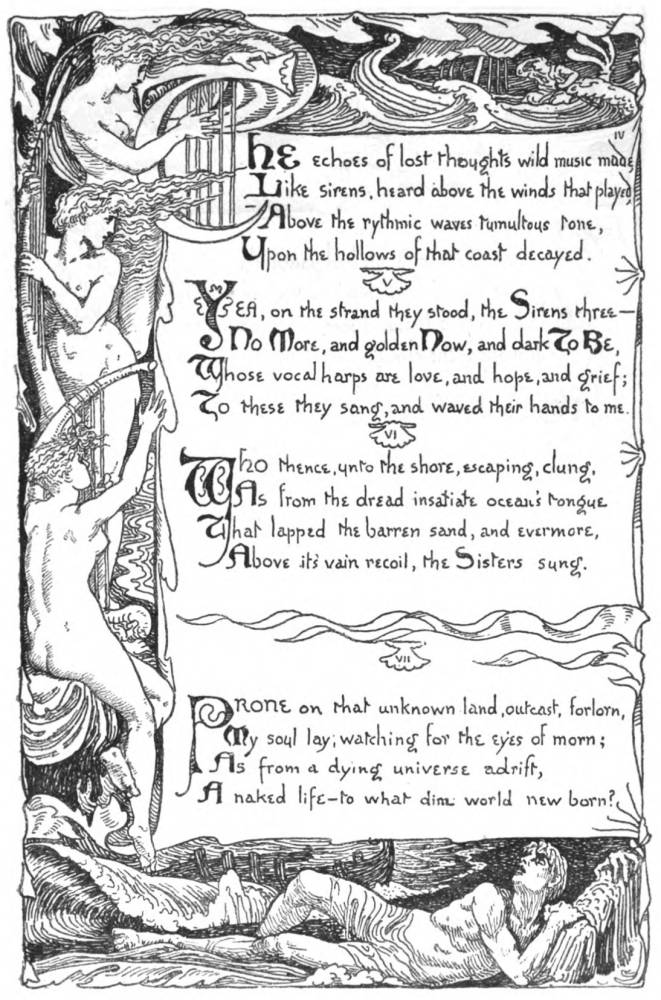 IV
THE echoes of lost thoughts wild music made
Like sirens, heard above the winds that played
Above the rythmic waves tumultous tone,
Upon the hollows of that coast decayed.
V
YEA, on the strand they stood, the Sirens three—
No More, and golden Now, and dark To Be,
Whose vocal harps are love, and hope, and grief;
To these they sang, and waved their hands to me.
VI
WHO thence, unto the shore, escaping, clung,
As from the dread insatiate ocean's tongue
That lapped the barren sand, and evermore,
Above its vain recoil, the Sisters sung.
VII
PRONE on that unknown land, outcast, forlorn,
My soul lay; watching for the eyes of morn;
As from a dying universe adrift,
A naked life—to what dim world new born?